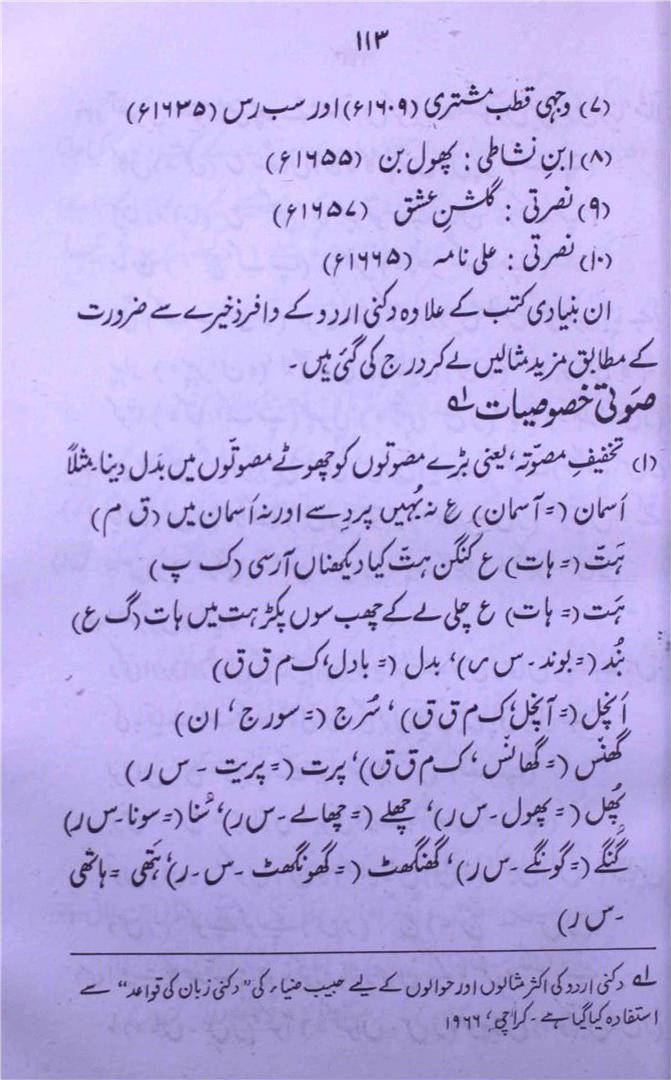 ۱۱۳
(۷) وجہی قطب مشتری (۱۶۰۹ء) اور سب رس (۱۶۳۵ء)
(۸) ابنِ نشاطی : پھول بن (۱۶۵۵ء)
(۹) نصرتی : گلشنِ عشق (۱۶۵۷ء)
(۱۰) نصرتی : علی نامہ (۱۶۶۵ء)
ان بنیادی کتب کے علاوہ دکنی اردو کے وافر ذخیرے سے ضرورت
کے مطابق مزید مثالیں لے کر درج کی گئی ہیں۔
صَوتی خصوصیات ۱؎
(۱) تخفیفِ مصوّتہ، یعنی بڑے مصوتوں کو چھوٹے مصوتّوں میں بَدل دینا مثلاً
اَسمان (= آسمان) ع نہ بُہیں پر دِسے اور نہ اَسمان میں (ق م)
ہَت (= ہات) ع کنگن ہت کیا دیکھناں آرسی (ک پ)
ہَت (= ہات) ع چلی لے کے چھب سوں پکڑ ہت میں ہات (گ ع)
بُند (= بوند۔ س ر)، بدل (= بادل، ک م ق ق)
اَنچل (= آنچل، ک م ق ق)، سُرج (= سورج، ان)
گھَنس (= گھانس، ک م ق ق)، پرت (= پریت ۔ س ر)
پھُل (= پھول۔ س ر)، چھلے (= چھالے۔ س ر)، سُنا (= سونا۔ س ر)
گُنگے (= گونگے۔ س ر)، گھنگھٹ (= گھونگھٹ ۔ س۔ ر)، ہَتھی = ہاتھی
۔ س ر)
۱؎ دکنی اردو کی اکثر مثالوں اور حوالوں کے لیے حبیب ضیاء کی "دکنی زبان کی قواعد" سے
استفادہ کیا گیا ہے۔ کراچی، ۱۹۶۶